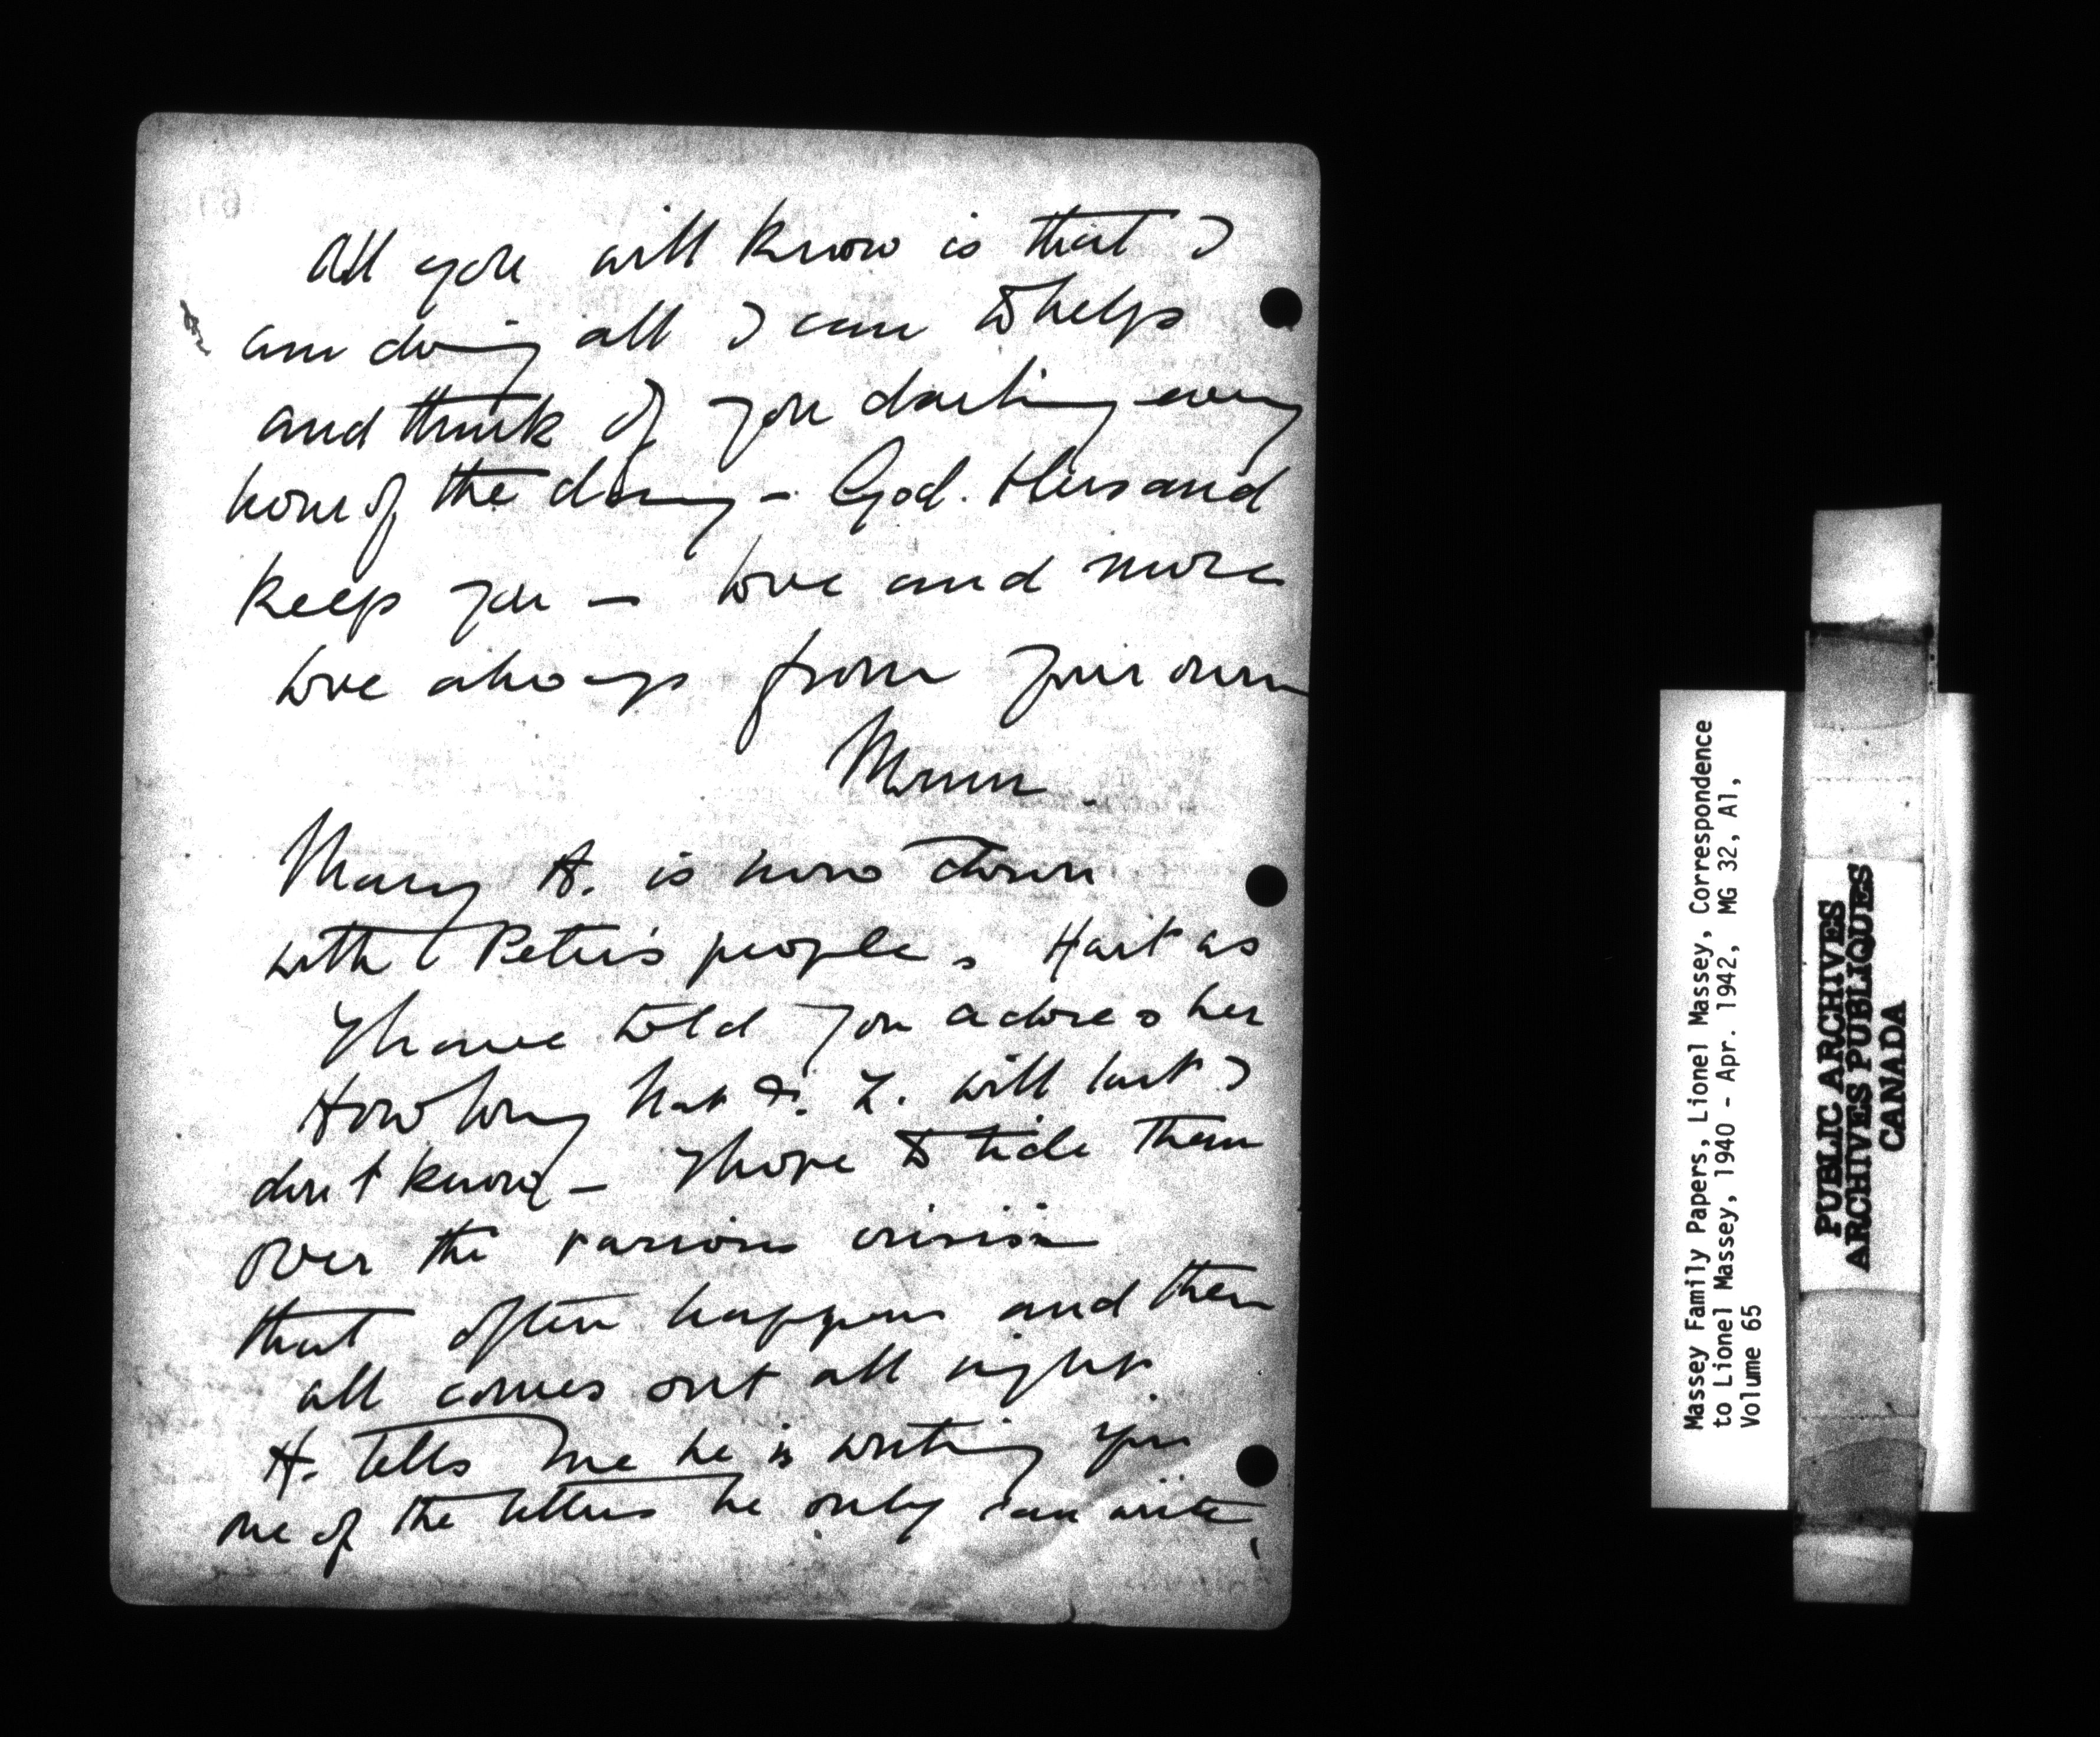 All you will know is that I
am doing all I can to help
and think of you darling every
hour of the day – God bless and
keep you – love and more
love always from your own
Mum.
Mary H. is now down
with Peter's people. Hart as
I have told you adores her
How long Nat & L. will last I
don't know – I hope to tide them
over the various crisis
that often happens and then
all comes out all right.
H. tells me he is writing you
one of the letters he only can write
Massey Family Papers, Lionel Massey, Correspondence
to Lionel Massey, 1940 - Apr. 1942, MG 32, A1,
Volume 65
PUBLIC ARCHIVES
ARCHIVES PUBLIQUES
CANADA